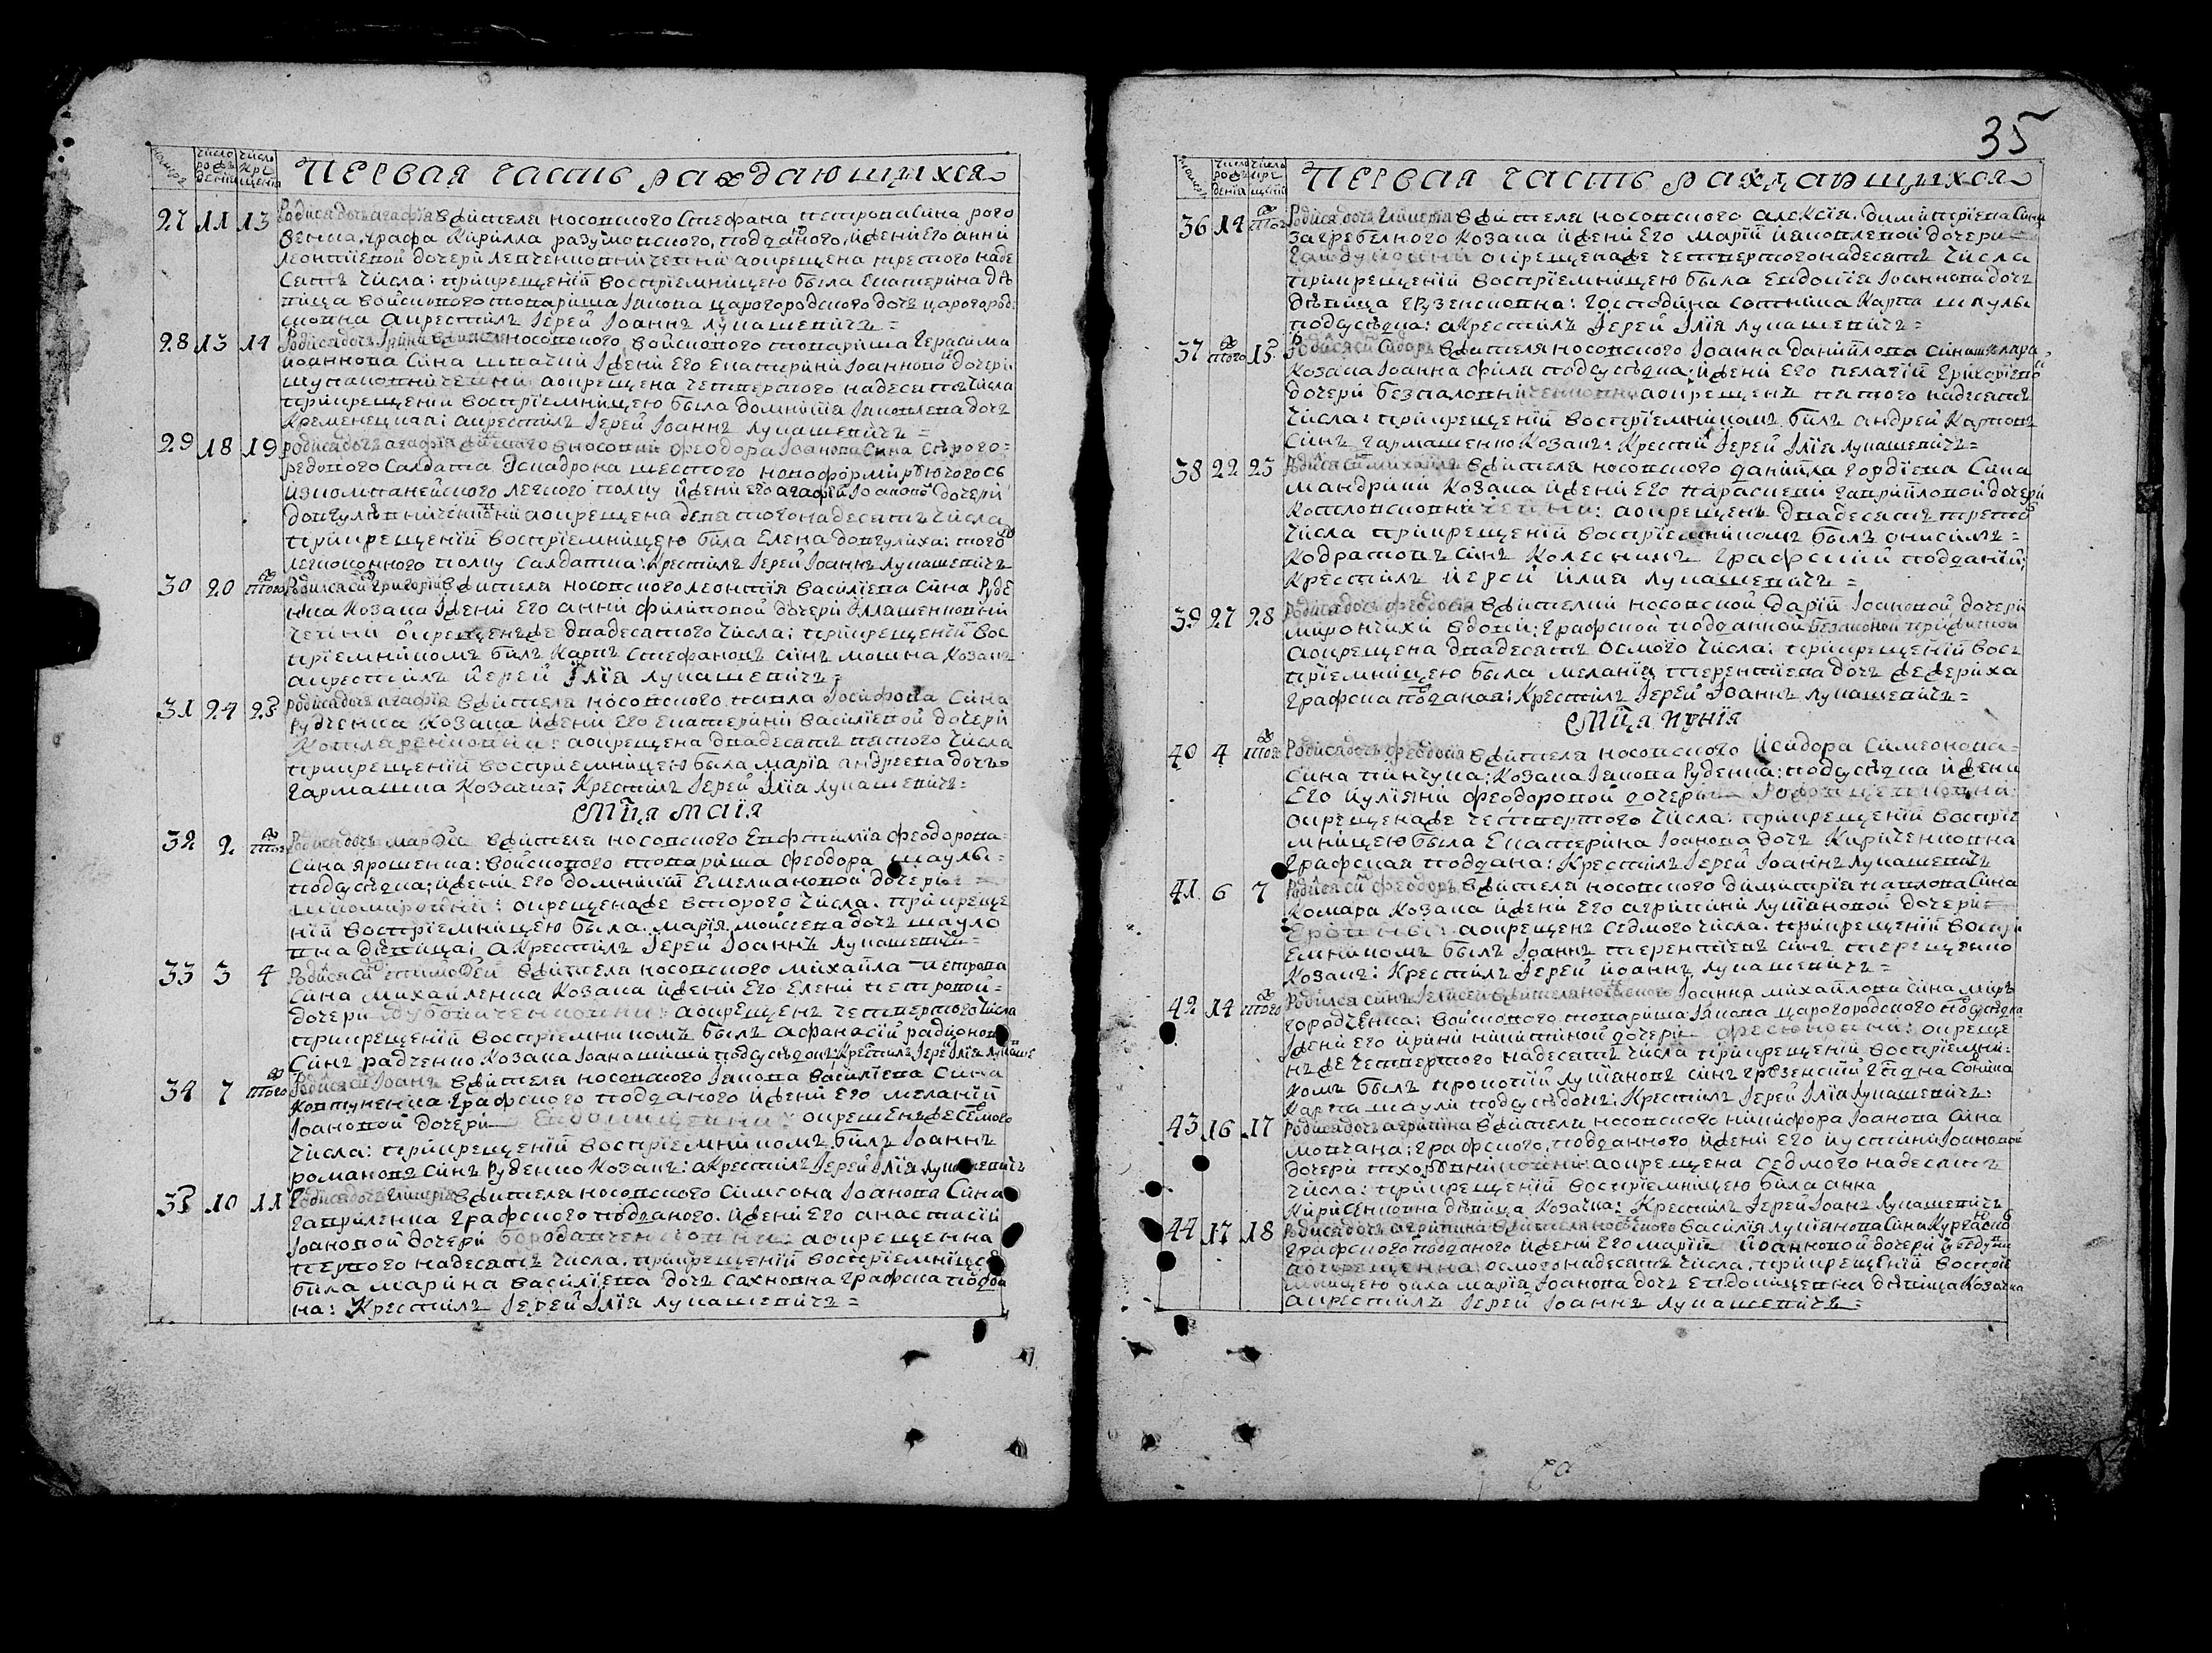 номеръ
число рожденія
число крещенія
Первая часть раждающихся
27 11 13 Родися дочь агафия в жителя носовского Стефана петрова сина рого
венка, графа Кирилла разумовского, подданого, и жени его анни
леонтиевой дочери левченковни а окрещена третого наде
сять числа: при крещении восприемницею была Екатерина дѣ
вица войскового товариша Іакова царогородского дочь царогород
сковна а крестилъ Іерей Іоаннъ Лукашевичъ =
28 13 14 Родися дочь Ірина в жителя носовского войскового товариша герасима
иоаннова сина шпачии Іжени его Екатерини Іоанновой дочери
а окрещена четвертого надесять числа
при крещении восприемницею была домникия Іаковлева дочь
Кременецкая: а крестилъ Іерей Іоаннъ лукашевичъ =
29 18 19 Родися дочь агафия жителего в носовки феодора Іоаннова сина
редового Салдата Эскадрона шестого новоформируючогось
из компанейского легкого полку и жени его агафии Іоановой дочери
а окрещена деватогонадесять числа
при крещении восприемницею била Елена довгулиха: того ж
легкоконного полку Салдатка: Крестилъ Іерей Іоаннъ лукашевичъ
30 20 того ж Родися синъ григорий в жителя носовского леонтия василиева сина Руде
нка Козака Іжени его анни филиповой дочери Иллашенковни
окрещенъ же двадесатого числа: при крещении вос
приемникомъ билъ Карпъ Стефановъ синъ мошна Козакъ
а крестилъ Иерей Ілїа лукашевичъ =
31 24 25 Родися дочь агафия в жителя носовского павла Іосифова Сина
рудченка Козака и жени его Екатерини василиевой дочери
Котляренковни: а окрещена двадесять патого числа
при крещении восприемницею была мария андреева дочь
гармашка Козачка; Крестилъ Іерей Ілїа лукашевичъ =
Мца маия
32 2 того ж Родися дочь марфа в жителя носовского Евфтимїа феодорова
Сина ярошенка: войскового товариша феодора шаулы
подсусѣдка; и жени его домникии Емелиановой дочери
окрещена же второго числа. при креще
нии восприемницею была. мария моисеева дочь шауло
вна дѣвица; а Крестилъ Іерей Іоаннъ лукашевичъ =
33 3 4 Родися синъ тимофей в жителя носовского михаила петрова
сина михайленка Козака и жени его Елени петровой
дочери а окрещенъ четвертого числа
при крещении восприемникомъ былъ афанасий радионовъ
Синъ радченко Козака подсусѣдокъ: Крестилъ Іерей Ілїа лукаше
34 7 того ж Родися синъ Іоанъ в жителя носовского Іакова василиева сина
Ковтуненка графского подданого и жени его мелании
Іоановой дочери окрещенъ же семого
числа: при крещении восприемникомъ билъ Іоаннъ
романовъ синъ Руденко Козакъ: а Крестилъ Іерей Ілїа лукашевичъ
35 10 11 Родися дочь гликерия в жителя носовского Симеона Іоанова Сина
гавриленка графского подданого. и жени его анастасии
Іоановой дочери а окрещенна
первого надесять числа. при крещении восприемницею
била марина василиева дочь Сахновна графска поддан
на: Крестилъ Іерей Ілїа лукашевичъ =
35
номеръ
число рожденія
число крещенія
Первая часть раждающихся
36 14 того ж Родися дочь гликерия в жителя носовского алексїа. димитриева сина
загребелного Козака и жени его марии иаковлевой дочери
окрещена же четвертогонадесять числа
при крещении восприемницею была Евдокїа Іоаннова дочь
дѣвица грузенсковна: господина сотника Карпа шаулы
подсусѣдка: а Крестилъ Іерей Ілїа лукашевичъ =
37 того ж 15 Родися синъ Сидоръ в жителя носовского Іоанна даниилова сина
Козака Іоанна фила подсусѣдка; и жени его пелагии григориевой
дочери а окрещенъ патого надесять
числа: при крещении восприемникомъ билъ андрей Карповъ
синъ гармашенко Козакъ: Крестил Іерей Ілїа лукашевичъ =
38 22 23 Родися синъ михаилъ в жителя носовского даниила гордїева Сина
мандрики Козака и жени его параскеви гавриловой дочери
а окрещенъ двадесять третого
числа при крещении восприемникомъ былъ онисимъ
кодратовъ синъ Колесникъ графский подданий;
Крестилъ Иерей Илия лукашевичъ =
39 27 28 Родися дочь феодосия в жителки носовской дарии Іоановой дочери
мирончихи вдови: графской подданной
а окрещена двадесять осмого числа: при крещении вос
приемницею была меланїа терентиева дочь
графска подданая: Крестилъ Іерей Іоаннъ лукашевичъ =
Мца июнїя
40 4 того ж Родися дочь феодосия в жителя носовского Исидора симеонова
Сина пинчука; Козака Іакова Руденка: подсусѣдка и жени
его иулїяни феодоровой дочери
окрещена же четвертого числа. при крещении восприе
мницею была Екатерина Іоанова дочь Кириченковна
графская поддана: Крестилъ Іерей Іоаннъ лукашевичъ
41 6 7 Родися синъ феодоръ в жителя носовского димитрїа павлова Сина
Комара Козака и жени его агрипини лукїановой дочери
а окрещенъ седмого числа. при крещении воспри
емникомъ былъ Іоаннъ терентиевъ синъ терещенко
Козакъ: Крестилъ Іерей Иоаннъ лукашевичъ =
42 14 того ж Родился синъ Іелисей в жителя носовского Іоанна михаилова Сина мир
городченка: войскового товариша Іакова царогородского подсусѣдка
Іжени его ирини никитиной дочери окреще
нъ же четвертого надесять числа при крещении восприемни
комъ былъ прокопий лукїановъ синъ грузенский гпдна сотника
Карпа шаули подсусѣдокъ: Крестилъ Іерей Ілїа лукашевичъ:
43 16 17 Родися дочь агрипина в жителя носовского никифора Іоанова сина
мовчана: графского. подданного и жени его иустини Іоановой
дочери а окрещена седмого надесять
числа: при крещении восприемницею била анна
дѣвица Козачка: Крестилъ Іерей Іоанъ лукашевичъ
44 17 18 Родися дочь агрипина в жителя носовского василїя лукїанова Сина
графского подданого и жени его марии Иоанновой дочери
а окрещенна осмого надесять числа. при крещении воспри
мницею била марїа Іоанова дочь Евдокищевна дѣвица Козачка
а крестилъ Іерей Іоаннъ лукашевичъ =